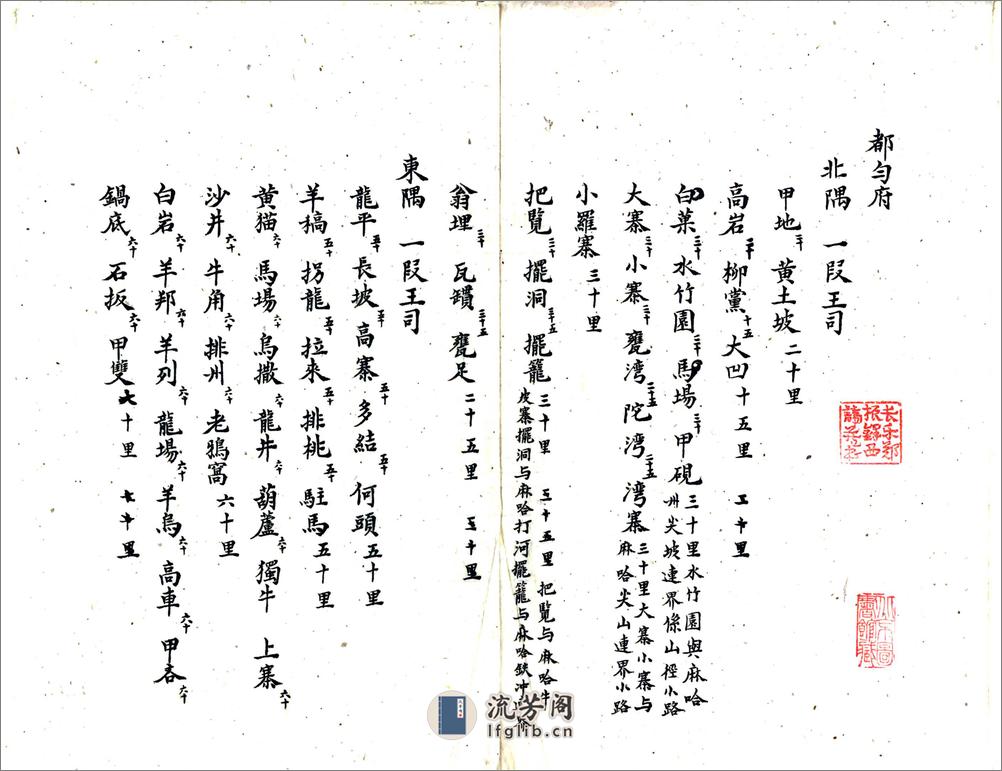 都勻府
北隅 一段王司
甲地二十 黃土坡二十里
高岩二十 柳黨十五 大凹十五里 二十里
白菓 水竹園二十 馬場二十 甲硯三十里水竹園與麻哈州尖坡連界係山徑小路
大寨三十 小寨三十 甕灣二十五 陀灣二十五 灣寨三十里大寨小寨与麻哈尖山連界小路
小羅寨三十里
把覽三十 擺洞三十五 擺籠三十里 三十五里 把覽与麻哈牛皮寨擺洞与麻哈打河擺籠与麻哈鉄冲
翁埋三十 瓦鑽三十五 甕足二十五里 三十里
東隅 一段王司
龍平五十 長坡五十 高寨五十 多結五十 何頭五十里
羊槁五十 拐龍五十 拉來五十 排桃五十 駐馬五十里
黃猫六十 馬場六十 烏撒六十 龍井六十 葫蘆六十 獨牛 上寨六十
沙井六十 牛角六十 排州六十 老鴉窩六十里
白岩六十 羊邦六十 羊列六十 龍場六十 羊烏六十 高車六十 甲呑六十
鍋底六十 石扳六十 甲雙七十里 七十里
流芳阁
lfglib.cn